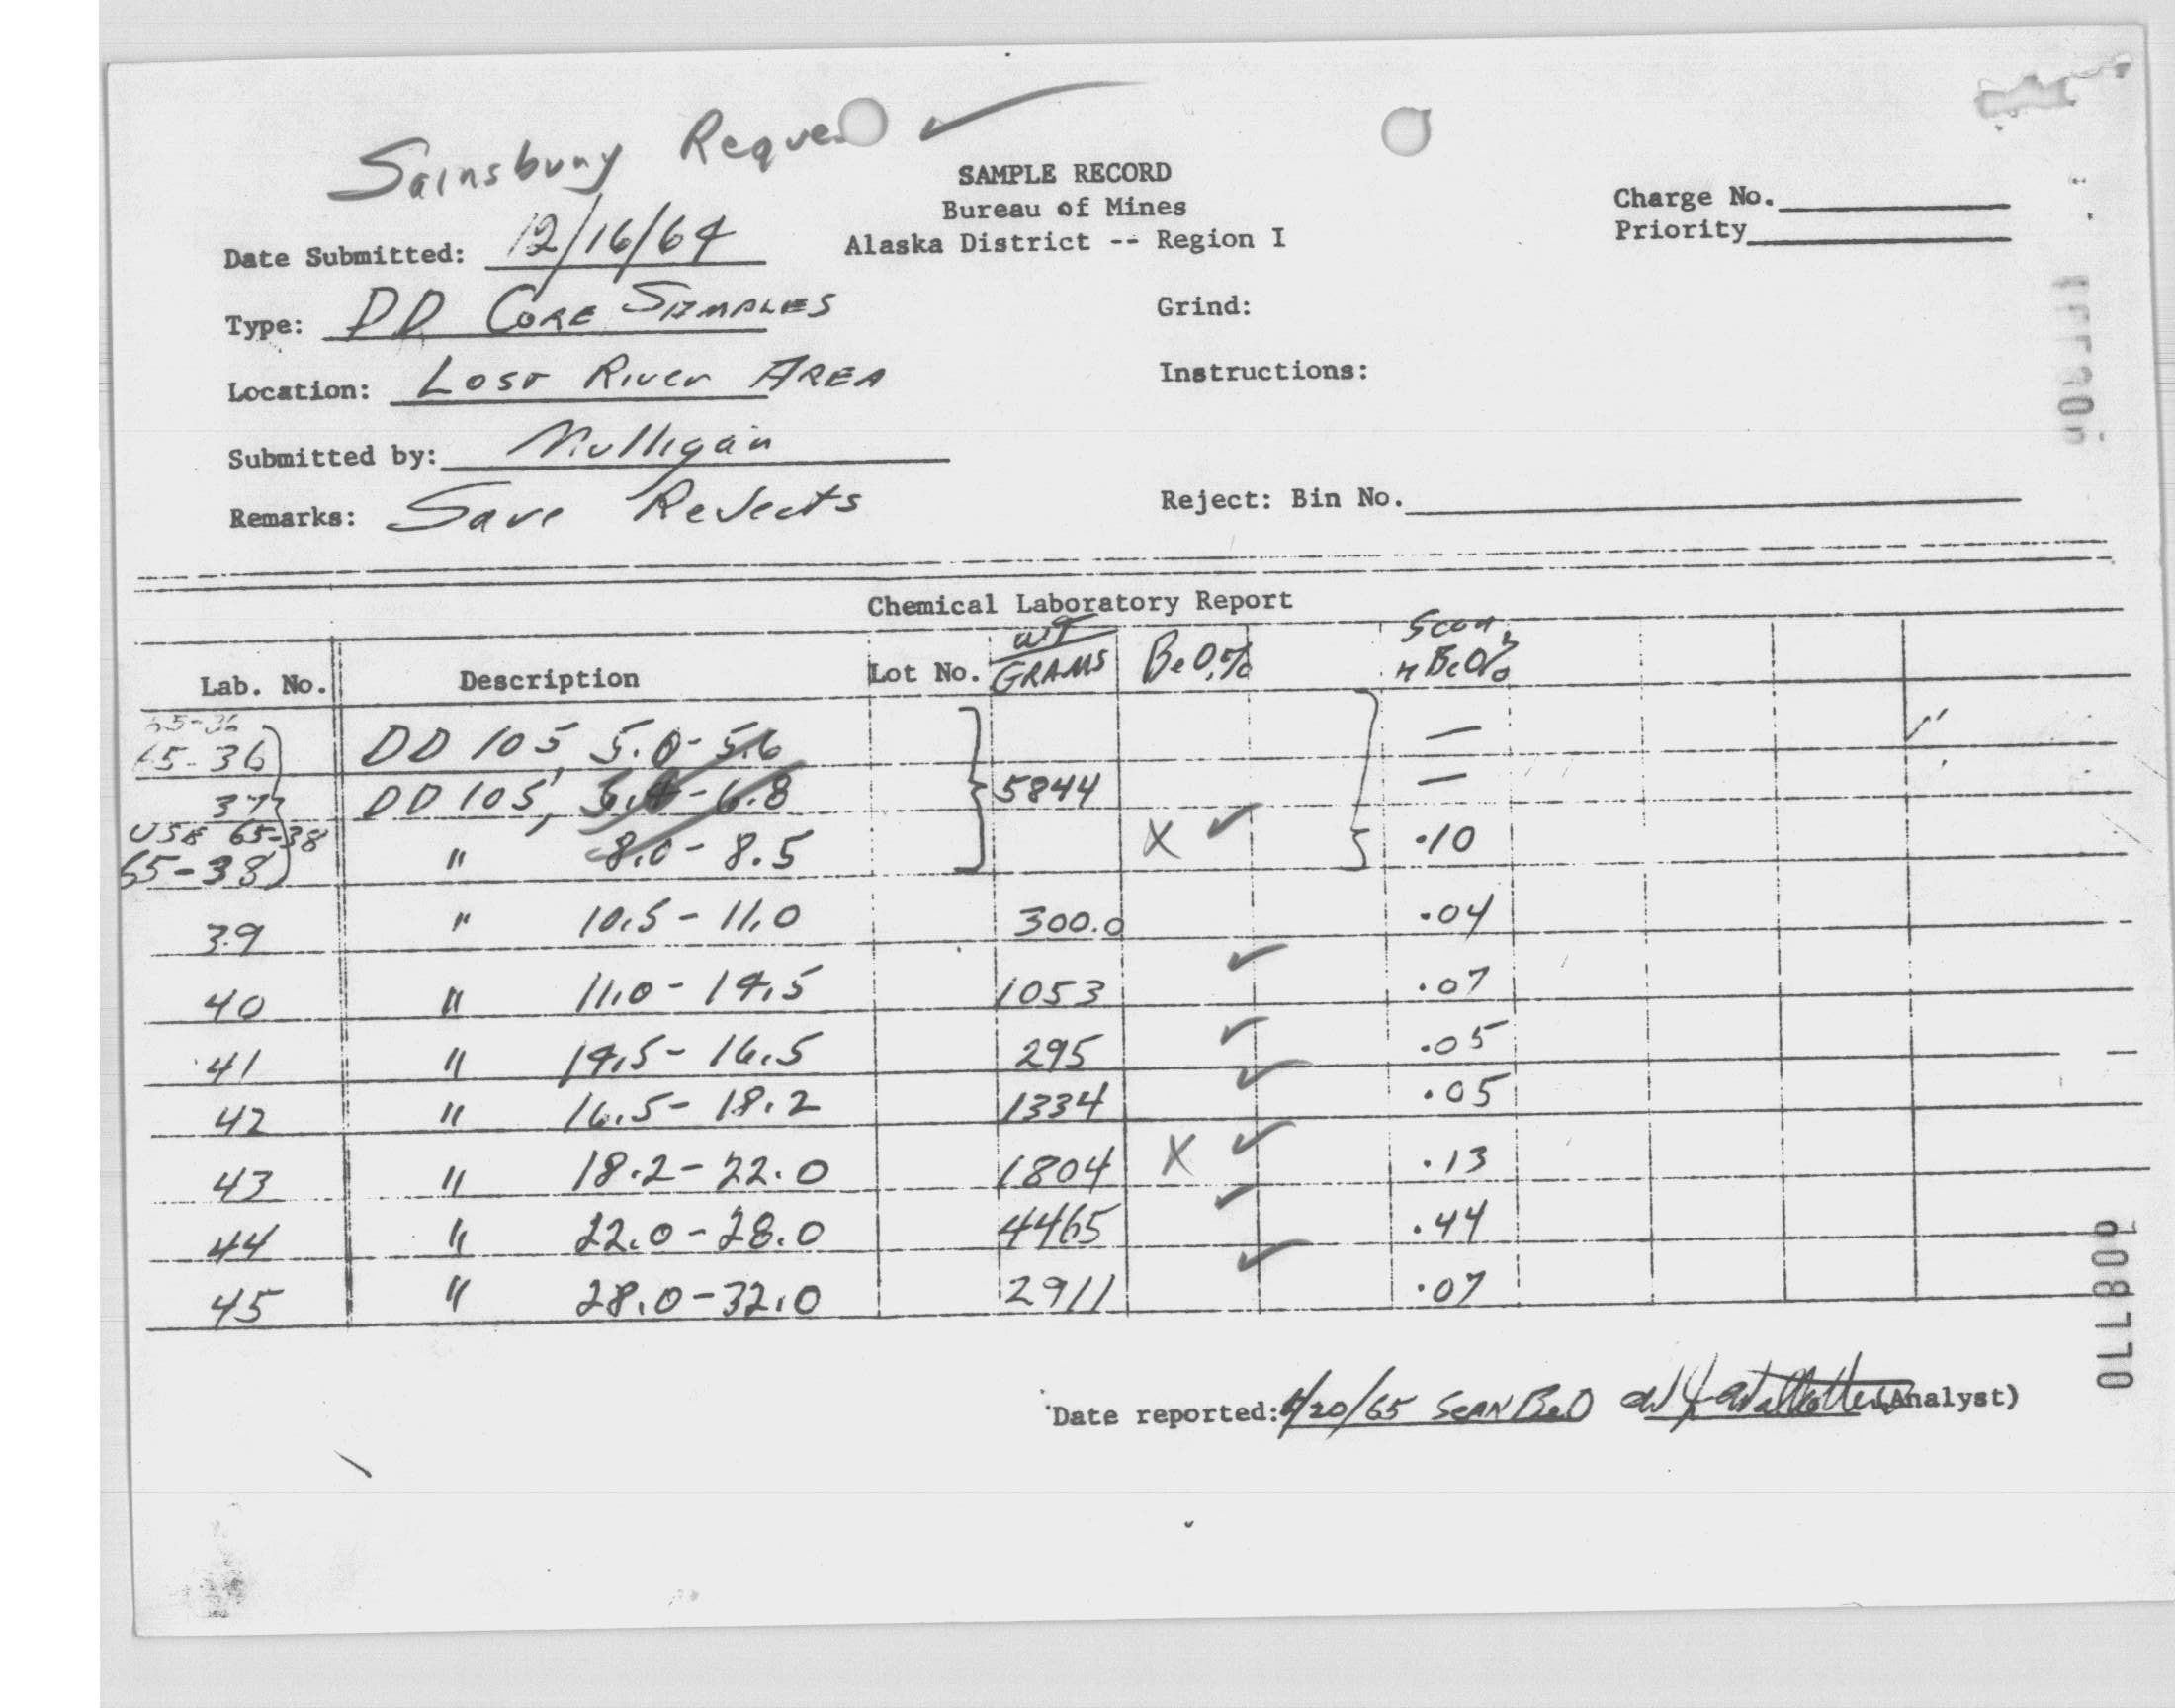 Sainsbury Reque
SAMPLE RECORD
Bureau of Mines
Alaska District -- Region I
Charge No.
Priority
Date Submitted: 12/16/64
Type: DD CORE SAMPLES
Grind:
Location: LOST RIVER AREA
Instructions:
Submitted by: Mulligan
Remarks: Save Rejects
Reject: Bin No.
Chemical Laboratory Report
Lab. No. Description Lot No. WT GRAMS BeO,% Scan BeO%
65-36
65-36 DD 105, 5.0-5.6 —
37 DD 105, 5844 —
USE 65-38
65-38 " 8.0-8.5 X ✓ .10
39 " 10.5-11.0 300.0 .04
40 " 11.0-14.5 1053 ✓ .07
41 " 14.5-16.5 295 ✓ .05
42 " 16.5-18.2 1334 ✓ .05
43 " 18.2-22.0 1804 X ✓ .13
44 " 22.0-28.0 4465 ✓ .44
45 " 28.0-32.0 2911 ✓ .07
Date reported: /20/65 SCAN BeO (Analyst)